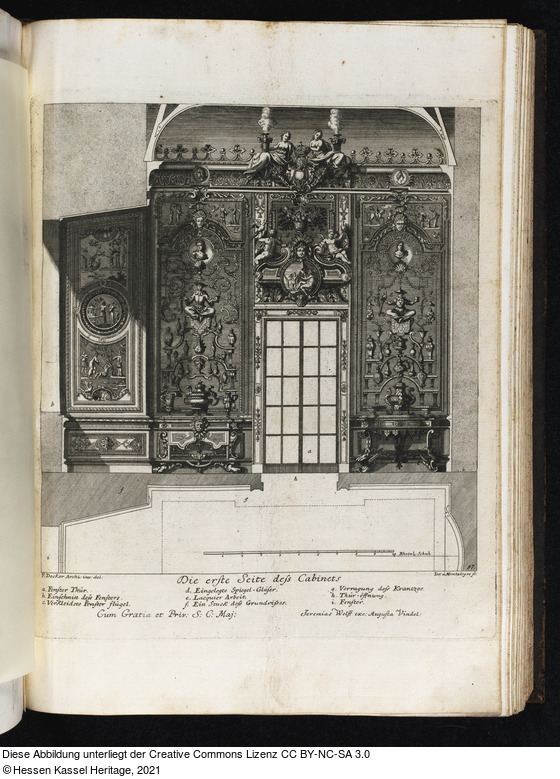 P. Decker Archi: inv: del:
Die erste Seite deß Cabinets
a. Fenster Thür.
b. Einschnitt deß Fensters.
c. Verkleidete Fenster flügel.
d. Eingelegte Spiegel-Gläser.
e. Lacquier Arbeit.
f. Ein Stuck deß Grundrißes.
g. Verragung deß Krantzes.
h. Thür-öffnung.
i. Fenster.
Cum Gratia et Priv: S: C: Maj:
Jeremias Wolff exc: Augustæ Vindel:
Diese Abbildung unterliegt der Creative Commons Lizenz CC BY-NC-SA 3.0
© Hessen Kassel Heritage, 2021